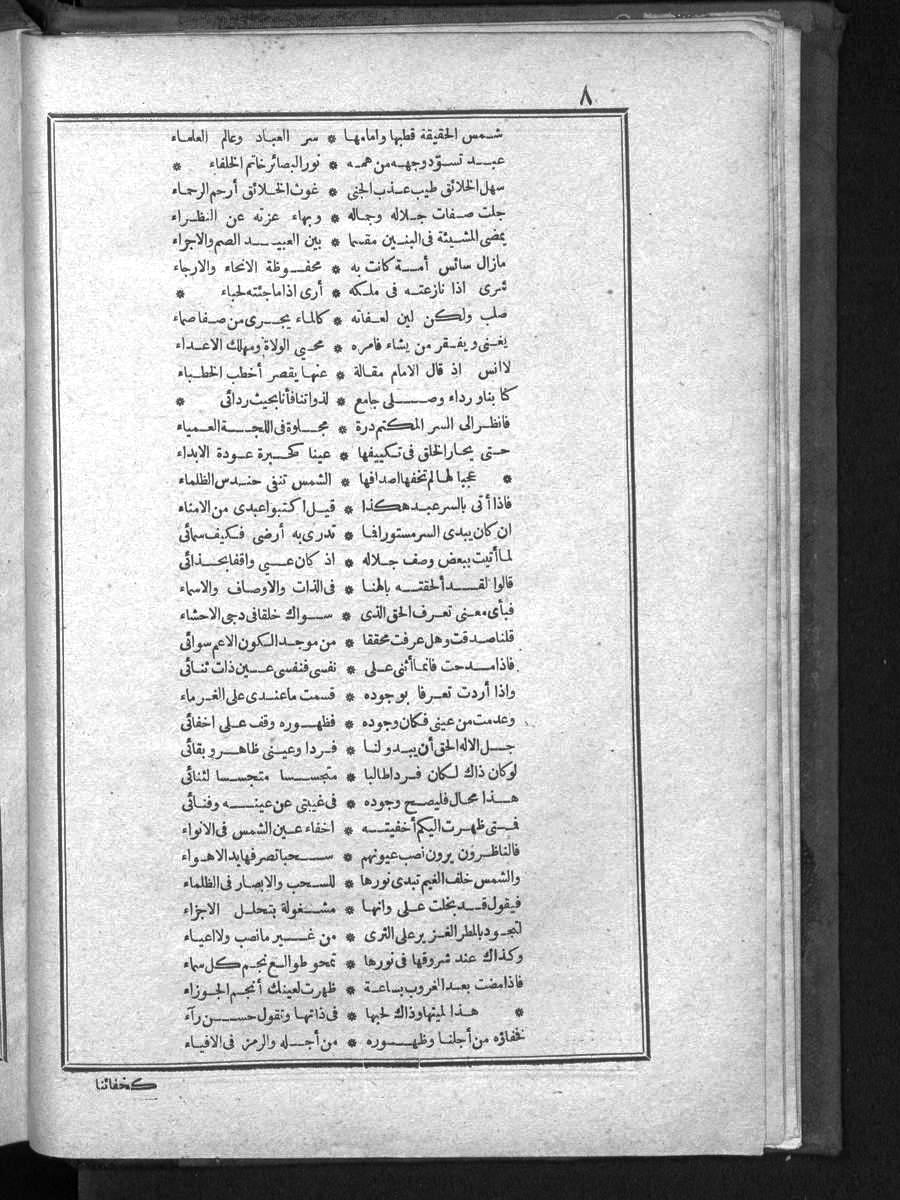 ٨
شمس الحقيقة قطبها وامامها * سر العباد وعالم العلماء
عبد تسوّد وجهه من همه * نور البصائر خاتم الخلفاء *
سهل الخلائق طيب عذب الجنى * غوث الخلائق أرحم الرحماء
جلت صفات جلاله وجماله * وبهاء عزته عن النظراء
يمضى المشيئة فى البنين مقسما * بين العبيد الصم والاجراء
مازال سائس أمة كانت به * محفوظة الانحاء والارجاء
شرى اذا نازعته فى ملكه * أرى اذا ماجئته لحباء *
صلب ولكن لين لعفاته * كالماء يجرى من صفا صماء
يغنى ويفقر من يشاء فامره * محيي الولاة ومهلك الاعداء
لا انس اذ قال الامام مقالة * عنها يقصر أخطب الخطباء
كنا بنا ورداء وصلى جامع * لذواتنا فأنا بحيث ردائى *
فانظر الى السر المكتم درة * مجلوة فى اللجة العمياء
حتى يحار الخلق فى تكييفها * عينا كحيرة عودة الابداء
* عجبا لها لم تخفها اصدافها * الشمس تنفى حندس الظلماء
فاذا أتى بالسر عبد هكذا * قيل اكتبوا عبدى من الامناء
ان كان يبدى السر مستورا فما * تدرى به أرضى فكيف سمائى
لما أتيت ببعض وصف جلاله * اذ كان عيى واقفا بحذائى
قالوا لقد ألحقته بالهنا * فى الذات والاوصاف والاسماء
فبأى معنى تعرف الحق الذى * سواك خلقا فى دجى الاحشاء
قلنا صدقت وهل عرفت محققا * من موجد الكون الاعم سوائى
فاذا مدحت فانما أثنى على * نفسى فنفسى عين ذات ثنائى
واذا أردت تعرفا بوجوده * قسمت ماعندى على الغرماء
وعدمت من عينى فكان وجوده * فظهوره وقف على اخفائى
جل الاله الحق أن يبدو لنا * فردا وعينى ظاهر وبقائى
لوكان ذاك لكان فردا طالبا * متجسسا متجسسا لثنائى
هذا محال فليصح وجوده * فى غيبتى عن عينه وفنائى
فمتى ظهرت اليكم أخفيته * اخفاء عين الشمس فى الانواء
فالناظرون يرون نصب عيونهم * سحبا تصرفها يد الاهواء
والشمس خلف الغيم تبدى نورها * للسحب والابصار فى الظلماء
فيقول قد بخلت على وانها * مشغولة بتحلل الاجزاء
لتجود بالمطر الغزير على الثرى * من غير مانصب ولا اعياء
وكذاك عند شروقها فى نورها * تمحو طوالع نجم كل سماء
فاذا مضت بعد الغروب بساعة * ظهرت لعينك أنجم الجوزاء
* هذا لميتها وذاك لحيها * فى ذاتها وتقول حسن رآء
نخفاؤه من أجلنا وظهوره * من أجله والرمز فى الافياء
كخفائنا